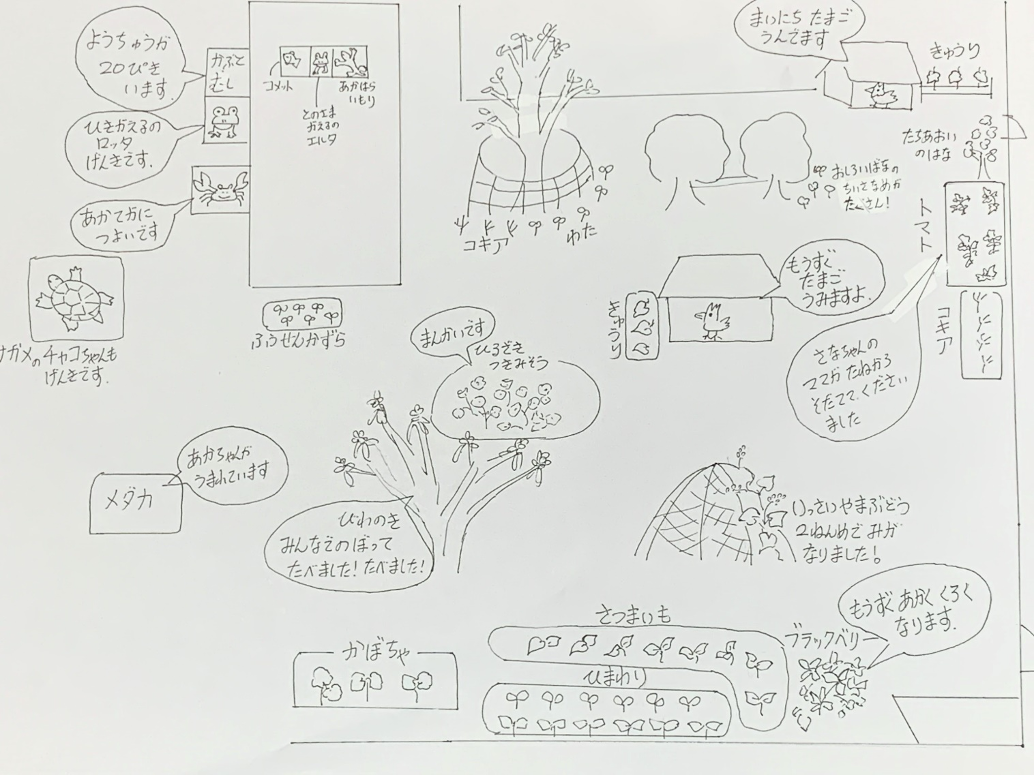 ようちゅうが
20ぴき
います.
かぶと
むし
ひきがえるの
ロッタ
げんきです.
あかてがに
つよいです
コメット
とのさま
がえるの
エルタ
あかはら
いもり
ガメのチャコちゃんも
げんきです.
ふうせんかずら
コキア
わた
まいにち たまご
うんでます
きゅうり
たちあおい
のはな
おしろいばなの
ちいさなめが
たくさん!
トマト
コキア
もうすぐ
たまご
うみますよ.
きゅうり
さなちゃんの
ママが たねから
そだてて.ください
ました
まんかいです
ひるざき
つきみそう
メダカ
あかちゃんが
うまれています
びわのき
みんなでのぼって
たべました!たべました!
いっさいやまぶどう
2ねんめで みが
なりました!
かぼちゃ
さつまいも
ひまわり
ブラックベリー
もうすぐ あかく くろく
なります.